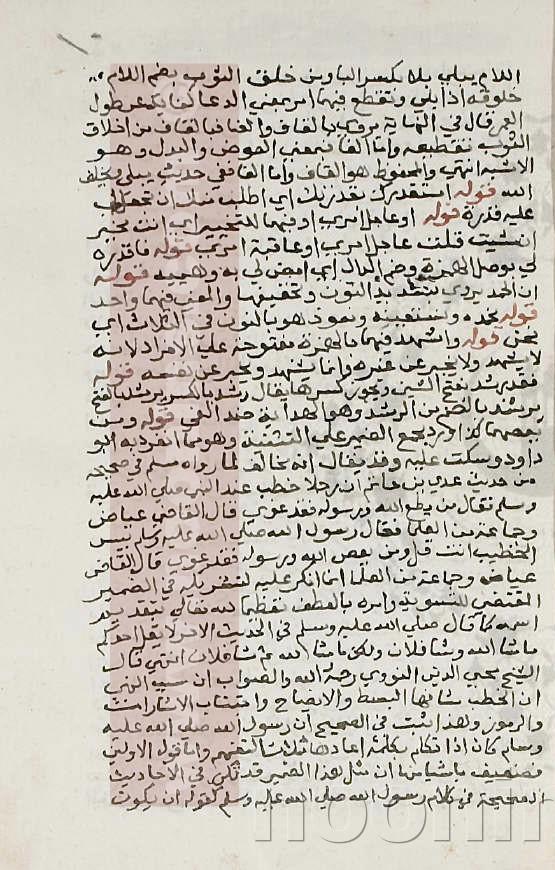 اللام يبلي بلا بكسر البا ومن خلف الثوب بضم اللام
خلوقه اذا بلي وتقطع فيهما امر بمعني الدعا كنا يه عن طول
العمر قال في النهاية يروي بالقاف والفا فبالقاف من اخلاق
الثوب تقطيعه واما الفا فبمعني العوض والبدل وهو
الاشبه انتهي والمحفوظ هو القاف واما الفا ففي حديث يبلي ويخلف
الله قوله استقدرك بقدرتك اي اطلب منك ان تجعل لي
عليه قدرة قوله او عاجل امري او فيهما للتخيير اي انت مخير
ان شيت قلت عاجل امري او عاقبة امري قوله فاقدره
لي بوصل الهمزة وضم الدال اي اقض لي به وهييه قوله
ان الحمد يروي بتشديد النون وتخفيفها والمعني فيهما واحد
قوله نحمده ونستعينه ونعوذ هو بالنون في الثلاث اي
نحن قوله واشهد فيهما بالهمزة مفتوحة علي الافراد لانه
لا يشهد ولا يخبر عن غيره وانما يشهد ويخبر عن نفسه قوله
فقد رشد بفتح الشين ويجوز كسرها يقال رشد بالكسر يرشد بالفتح
يرشد بالضم من الرشد وهو الهداية ضد الغي قوله ومن
يعصهما كذا ورد بجمع الضمير علي التثنية وهو مما انفرد به ابو
داود وسكت عليه وقد يقال انه مخالف لما رواه مسلم في صحيحه
من حديث عدي بن حاتم ان رجلا خطب عند النبي صلي الله عليه
وسلم فقال من يطع الله ورسوله فقد غوي قال القاضي عياض
وجماعة من العلما فقال رسول الله صلي الله عليه وسلم بيس
الخطيب انت قل ومن يعص الله ورسوله فقد غوي قال القاضي
عياض وجماعة من العلما انما انكر عليه لتشريكه في الضمير
المقتضي للتسوية وامره بالعطف تعظيما لله تعالي بتقديم
اسمه كما قال صلي الله عليه وسلم في الحديث الاخر لا يقل احدكم
ما شا الله وشا فلان ولكن ما شا الله ثم شا فلان انتهي قال
الشيخ محيي الدين النووي رحمه الله والصواب ان سبب النهي
ان الخطب شانها البسط والايضاح واجتناب الاشارات
والرموز ولهذا ثبت في الصحيح ان رسول الله صلي الله عليه
وسلم كان اذا تكلم بكلمة اعادها ثلاثا لتفهم واما قول الاولين
فضعيف باشيا منها ان مثل هذا الضمير قد تكرر في الاحاديث
الصحيحة من كلام رسول الله صلي الله عليه وسلم كقوله ان يكون